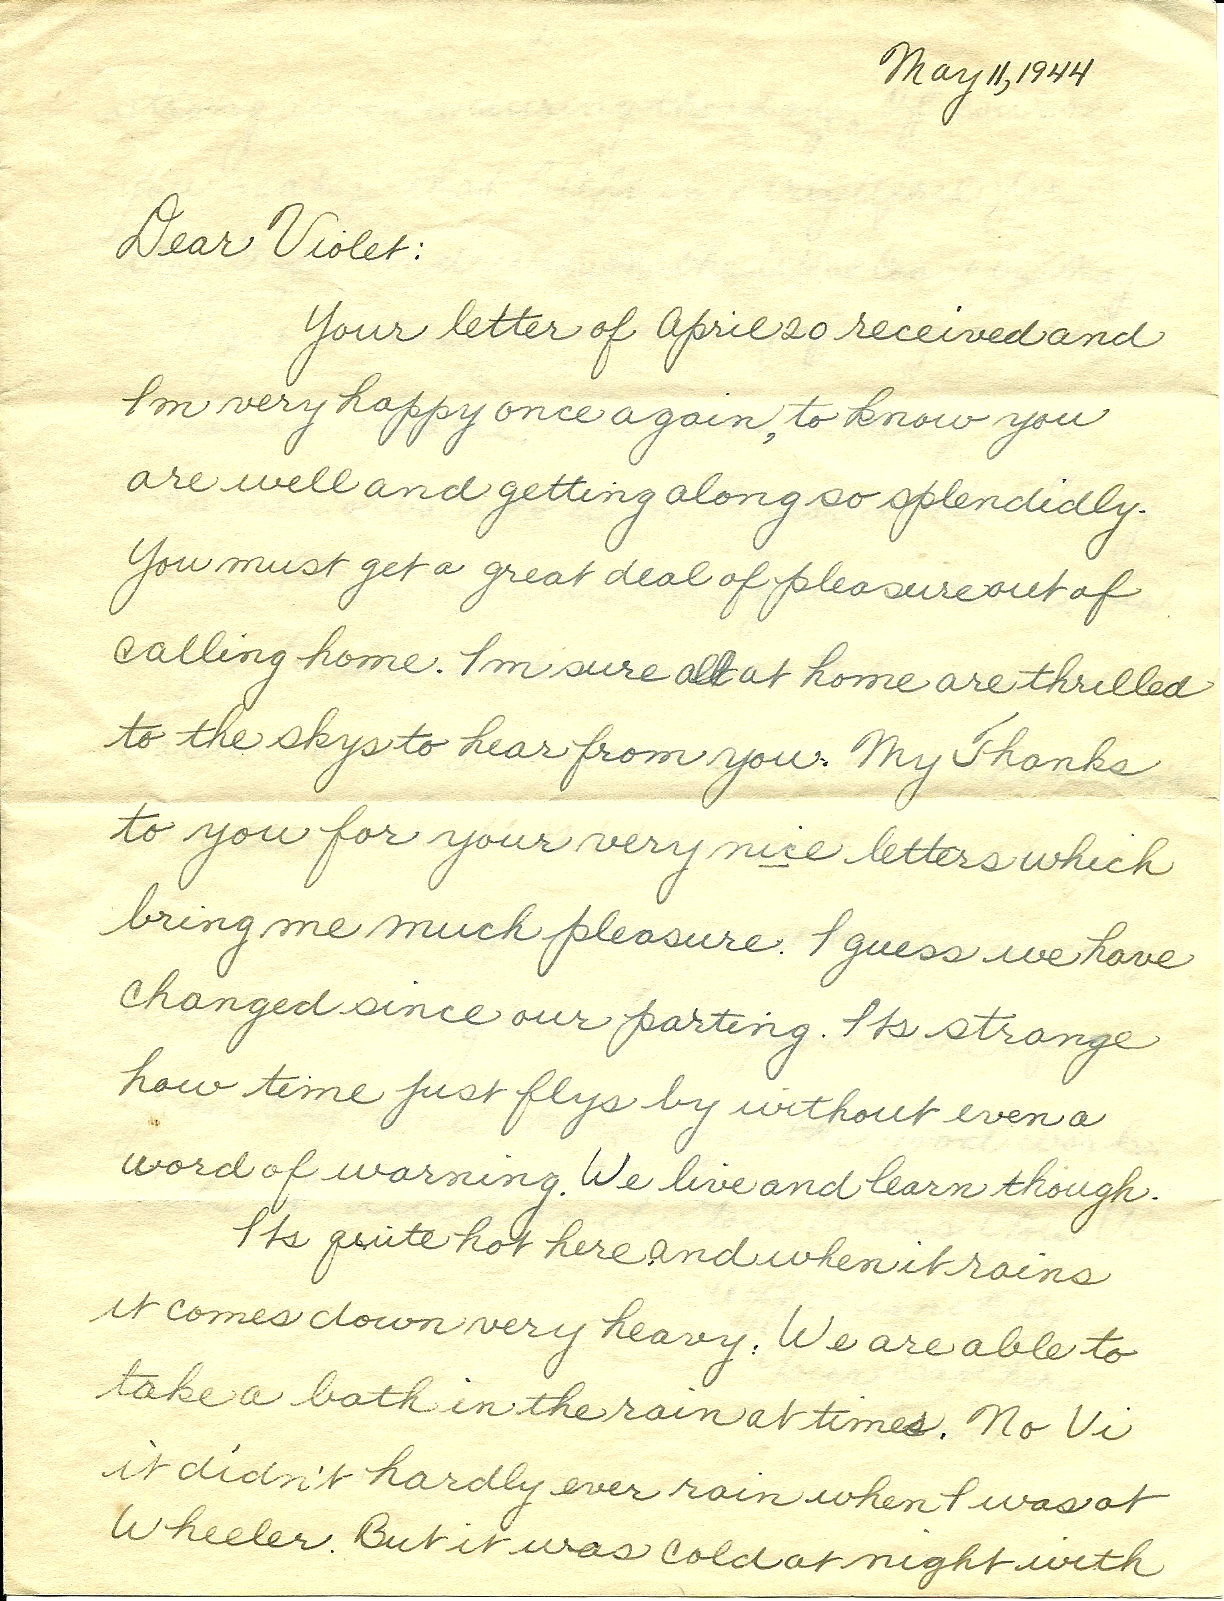 May 11, 1944
Dear Violet:
Your letter of April 20 received and
I'm very happy once again, to know you
are well and getting along so splendidly.
You must get a great deal of pleasure out of
calling home. I'm sure all at home are thrilled
to the skys to hear from you. My Thanks
to you for your very nice letters which
bring me much pleasure. I guess we have
changed since our parting. Its strange
how time just flys by without even a
word of warning. We live and learn though.
Its quite hot here and when it rains
it comes down very heavy. We are able to
take a bath in the rain at times. No Vi
it didn't hardly ever rain when I was at
Wheeler. But it was cold at night with